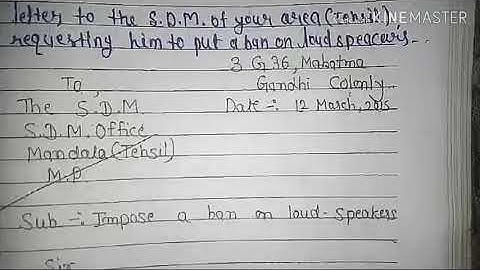 letter to the S.D.M. of your area (Tehsil)
requesting him to put a ban on loud speacers..
KINEMASTER
3 G 36, Mahatma
Gandhi Colonly
To,
The S.D.M. Date -: 12 March, 2015
S.D.M. Office
Mandala (Tehsil)
M.P
Sub -: Impose a ban on loud-speakers
Sir